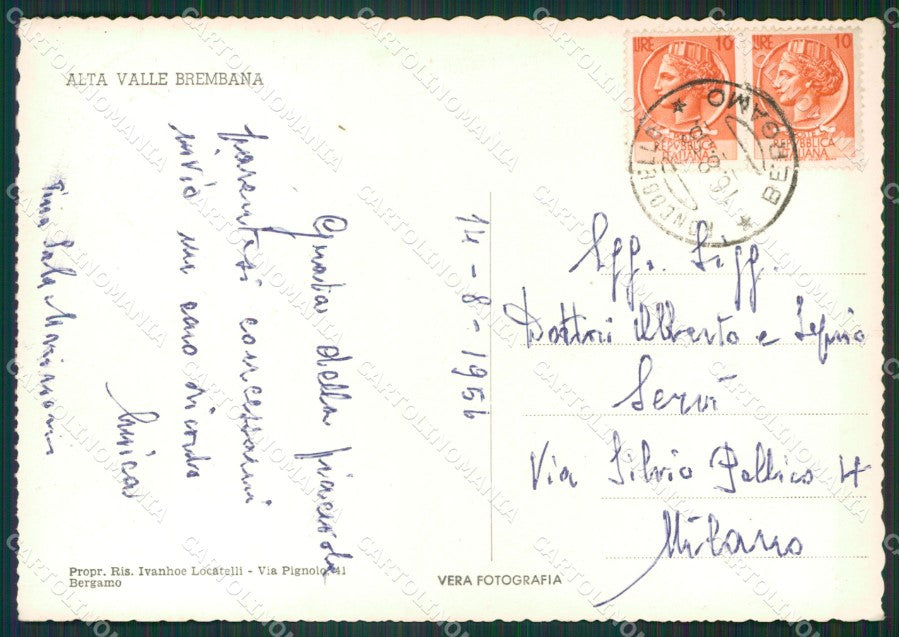 ALTA VALLE BREMBANA
Grata della piacevole
parentesi concessami
invio un caro ricordo
Tina Sala
14-8-1956
LIRE 10
REPVBBLICA
ITALIANA
LIRE 10
POSTE
REPVBBLICA
ITALIANA
RONCOBELLO
BERGAMO
16.8.56
Egg. Sigg.
Dottori Alberto e
Servi
Via Silvio Pellico 4
Milano
Propr. Ris. Ivanhoe Locatelli - Via Pignolo, 41
Bergamo
VERA FOTOGRAFIA
CARTOLINOMANIA